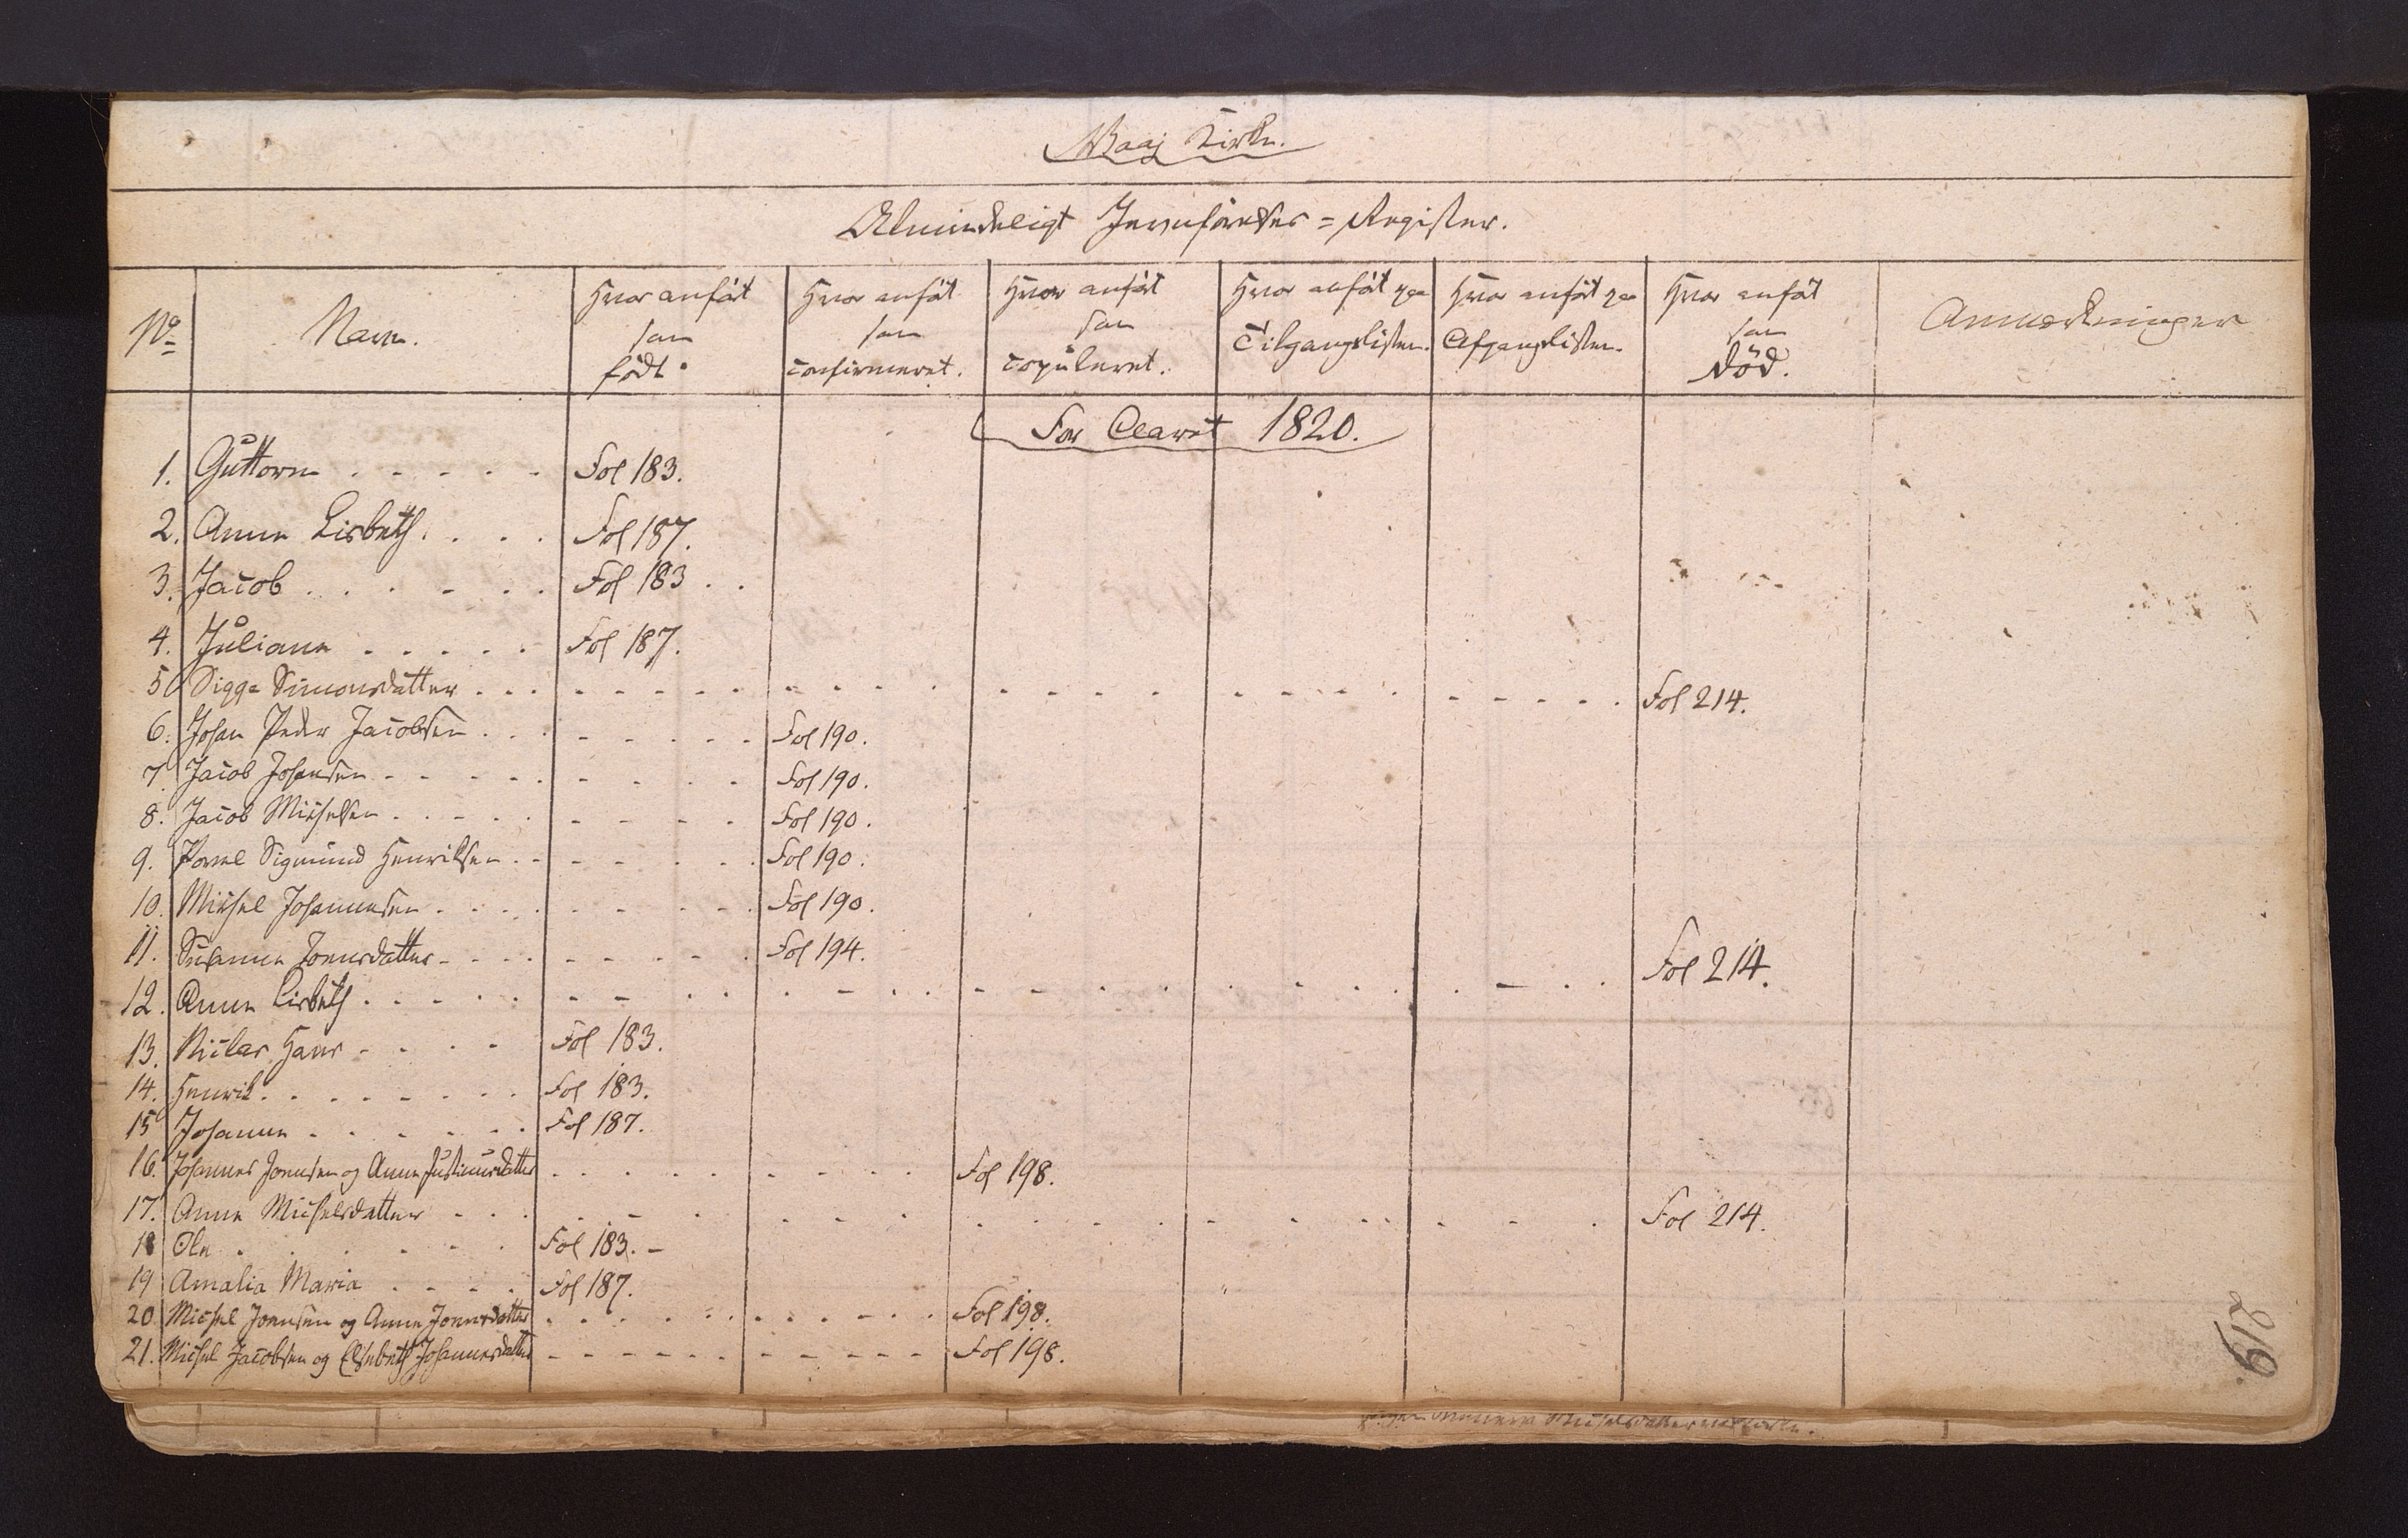 Waaj Kirke.
Almindeligt Jevnførelses=Register.
No
Navn.
Hvor anført
som
født.
Hvor anført
som
confirmeret.
Hvor anført
som
copuleret.
Hvor anført paa
Tilgangslisten.
Hvor anført paa
Afgangslisten.
Hvor anført
som
død.
Anmærkninger
For Aaret 1820.
1. Guttorm Fol 183.
2. Anne Lisbeth. Fol 187.
3. Jacob Fol 183
4. Juliane Fol 187.
5 Sigga Simonsdatter Fol 214.
6. Johan Peder Jacobsen Fol 190.
7 Jacob Johansen Fol 190.
8. Jacob Michelsen Fol 190.
9. Povel Sigmund Henriksen Fol 190.
10. Michel Johannesen Fol 190.
11. Susanne Joensdatter Fol 194.
12. Anne Lisbeth Fol 214.
13. Niclas Hans Fol 183.
14. Henrik Fol 183.
15 Johanne Fol 187.
16. Johannes Joensen og Anne Justinusdatter Fol 198.
17. Anne Michelsdatter Fol 214.
18 Ole Fol 183.
19 Amalia Maria Fol 187.
20 Michel Joensen og Anne Joensdatter Fol 198.
21. Michel Jacobsen og Elsebeth Johannesdatter Fol 198.
219.